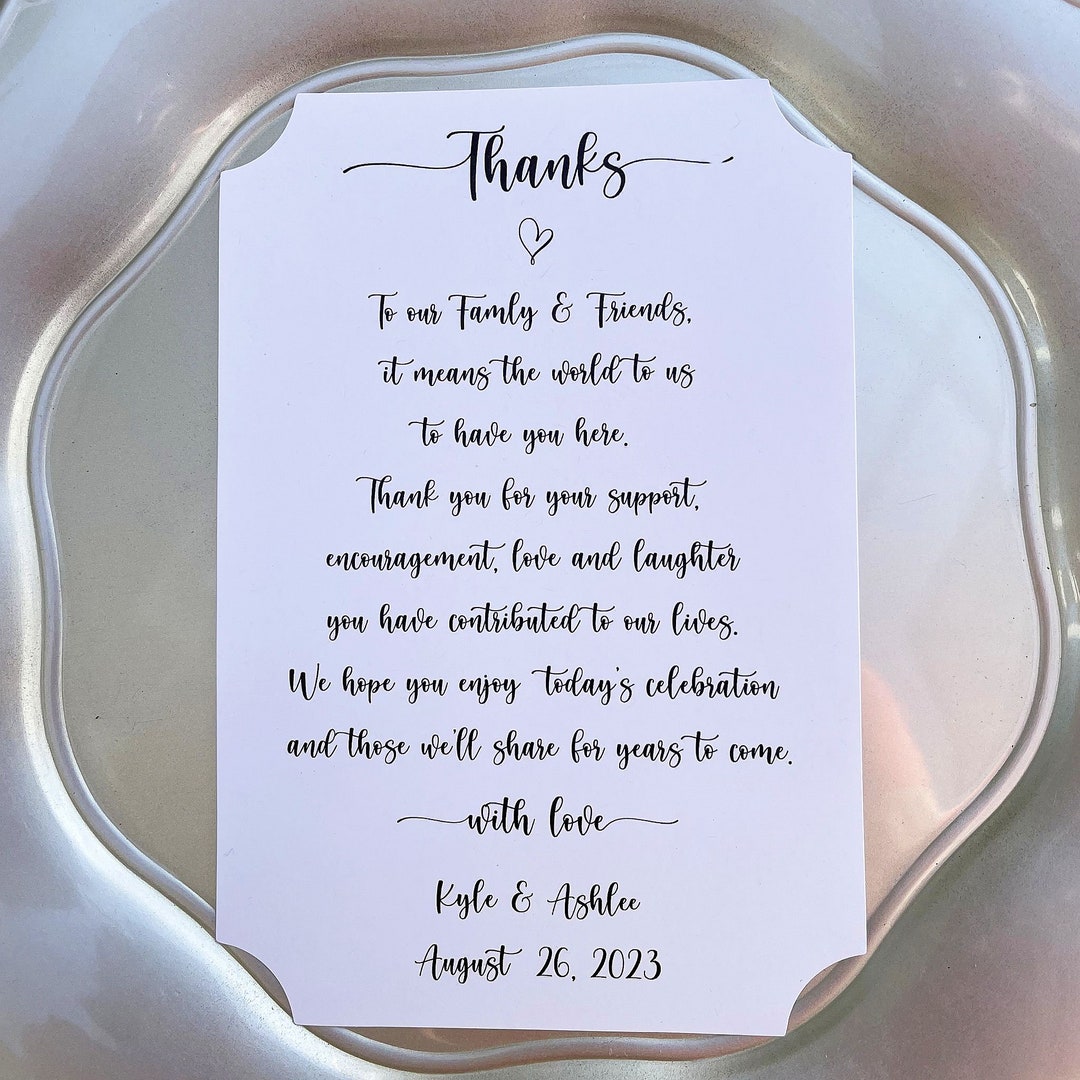 Thanks
To our Famly & Friends,
it means the world to us
to have you here.
Thank you for your support,
encouragement, love and laughter
you have contributed to our lives.
We hope you enjoy today's celebration
and those we'll share for years to come.
with love
Kyle & Ashlee
August 26, 2023